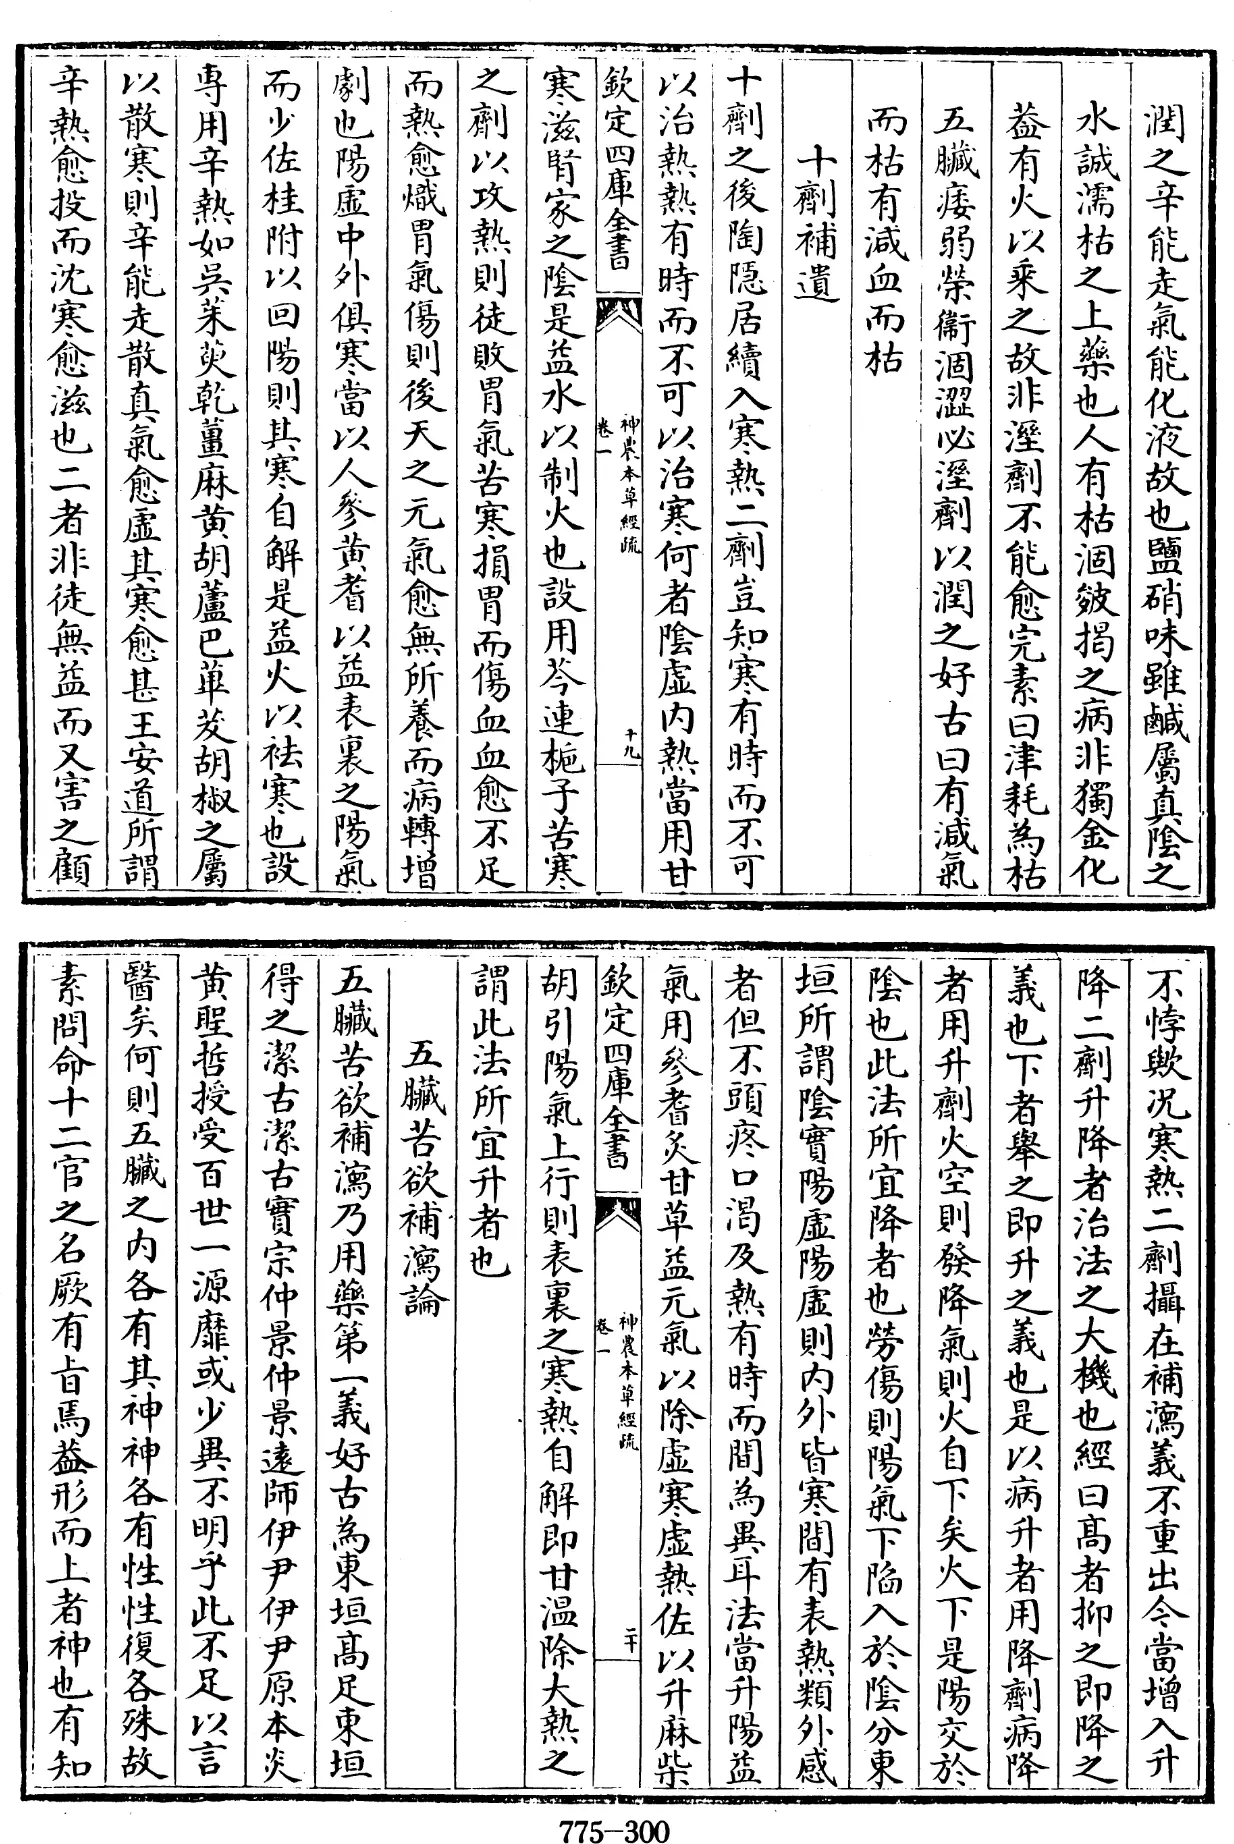 潤之辛能走氣能化液故也鹽硝味雖鹹屬真陰之
水誠濡枯之上藥也人有枯涸皴揭之病非獨金化
葢有火以乘之故非溼劑不能愈完素曰津耗為枯
五臟痿弱榮衞涸澀必溼劑以潤之好古曰有減氣
而枯有減血而枯
十劑補遺
十劑之後陶隱居續入寒熱二劑豈知寒有時而不可
以治熱熱有時而不可以治寒何者陰虛内熱當用甘
欽定四庫全書
神農本草經疏
卷一
十九
寒滋腎家之陰是益水以制火也設用芩連梔子苦寒
之劑以攻熱則徒敗胃氣苦寒損胃而傷血血愈不足
而熱愈熾胃氣傷則後天之元氣愈無所養而病轉增
劇也陽虛中外俱寒當以人參黄耆以益表裏之陽氣
而少佐桂附以回陽則其寒自解是益火以袪寒也設
専用辛熱如吳茱萸乾薑麻黄胡蘆巴蓽茇胡椒之屬
以散寒則辛能走散真氣愈虛其寒愈甚王安道所謂
辛熱愈投而沈寒愈滋也二者非徒無益而又害之顧
不悖歟况寒熱二劑攝在補瀉義不重出今當增入升
降二劑升降者治法之大機也經曰髙者抑之即降之
義也下者舉之即升之義也是以病升者用降劑病降
者用升劑火空則發降氣則火自下矣火下是陽交於
陰也此法所宜降者也勞傷則陽氣下陷入於陰分東
垣所謂陰實陽虛陽虛則内外皆寒間有表熱類外感
者但不頭疼口渴及熱有時而間為異耳法當升陽益
氣用參耆炙甘草益元氣以除虛寒虛熱佐以升麻柴
欽定四庫全書
神農本草經疏
卷一
二十
胡引陽氣上行則表裏之寒熱自解即甘溫除大熱之
謂此法所宜升者也
五臟苦欲補瀉論
五臟苦欲補瀉乃用藥第一義好古為東垣髙足東垣
得之潔古潔古實宗仲景仲景遠師伊尹伊尹原本炎
黄聖哲授受百世一源靡或少異不明乎此不足以言
醫矣何則五臟之内各有其神神各有性性復各殊故
素問命十二官之名厥有旨焉葢形而上者神也有知
775－300